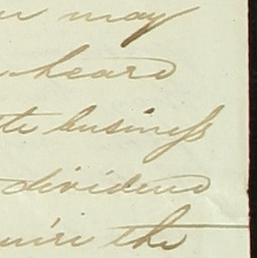 may
heard
business
dividend
the